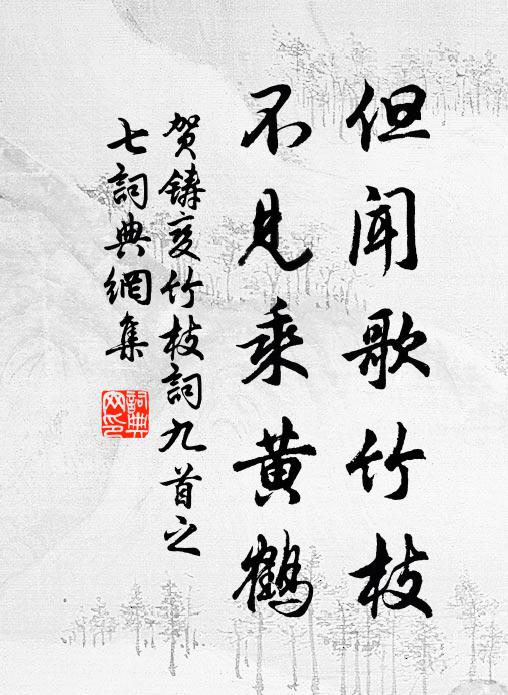 但闻歌竹枝
不见乘黄鹤
贺铸变竹枝詞九首之
七詞典網集
詞典
网印